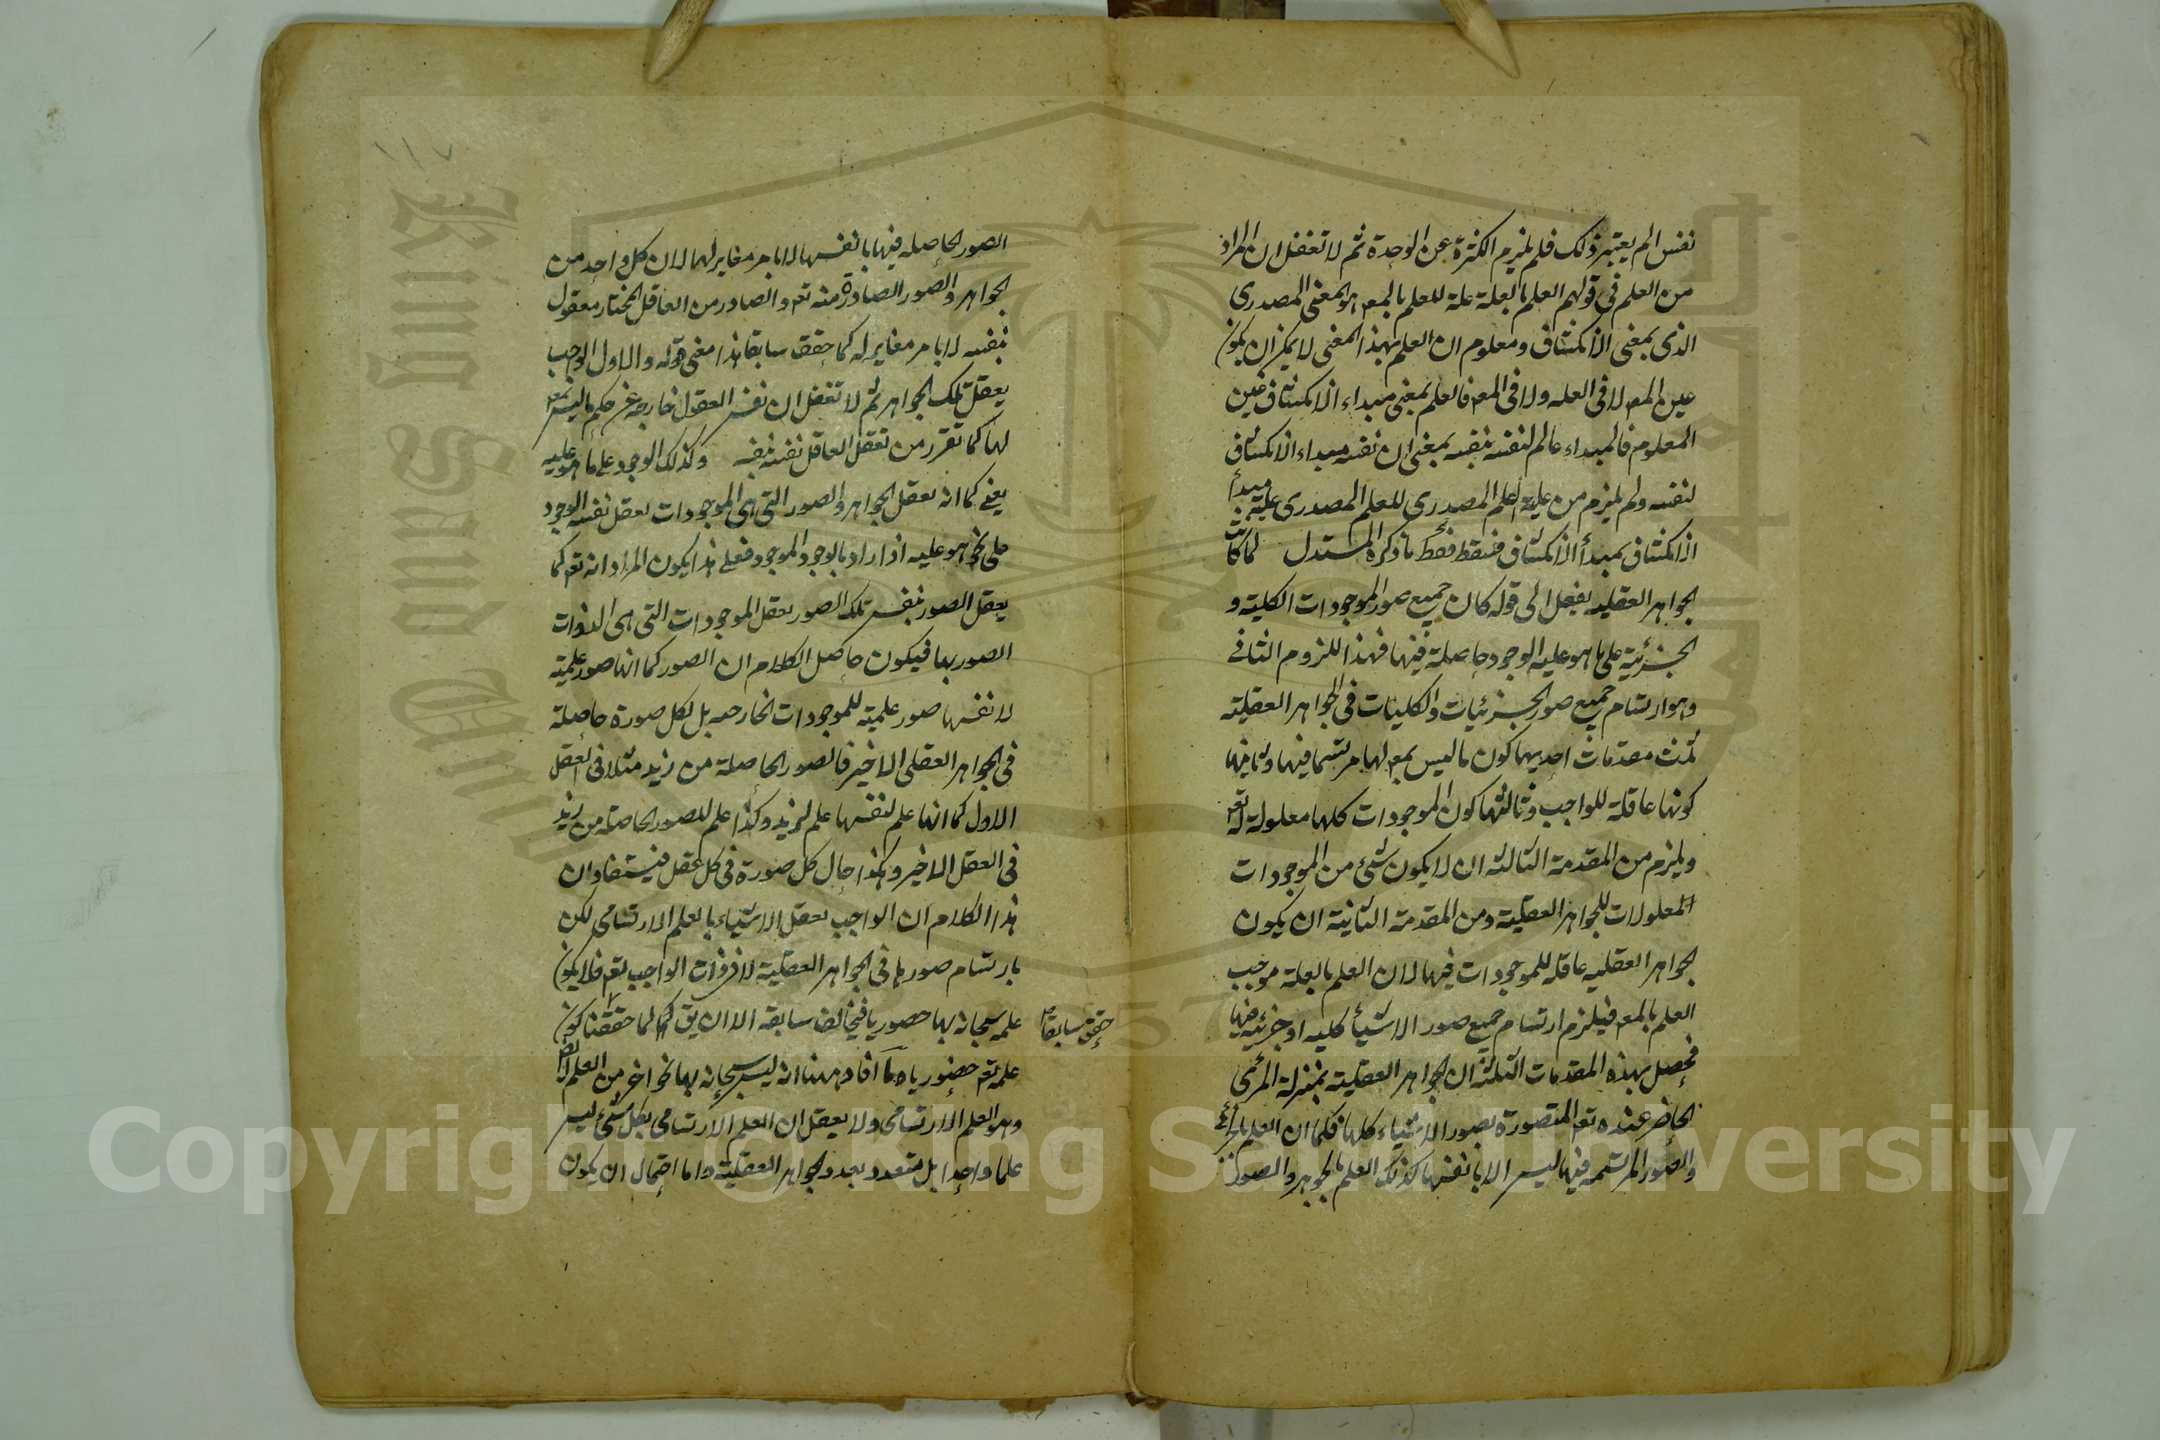 نفس الم يعتبر ذلك فلم يلزم الكثرة عن الوحدة ثم لا تغفل ان المراد
من العلم في قولهم العلم بالعلة علة للعلم بالمعـ هو المعنى المصدرى
الذى بمعنى الانكشاف ومعلوم ان العلم بهذا المعنى لا يمكن ان يكون
عين المعـ لا فى العله ولا فى المعـ فالعلم بمعنى مبداء الانكشاف عين
المعلوم فالمبداء عالم لنفسه بنفسه بمعنى ان نفسه مبداء الانكشاف
لنفسه ولم يلزم من علية العلم المصدرى للعلم المصدرى علية مبدأ
الانكشاف بمبدأ الانكشاف فسقط ما ذكره المستدل لما كانت
الجواهر العقليه يفعل الى قوله كان جميع صور الموجودات الكلية و
الجزئية على ما هو عليه الوجود حاصلة فيها فهذا اللزوم الثانى
وهو ارتسام جميع صور الجزئيات والكليات فى الجواهر العقلية
ثلث مقدمات احديها كون ما ليس بمعـ لها مرتسما فيها وثانيها
كونها عاقلة للواجب وثالثها كون الموجودات كلها معلولة له تعـ
ويلزم من المقدمة الثالثه ان لا يكون شئ من الموجودات
المعلولات للجواهر العقلية ومن المقدمة الثانية ان يكون
الجواهر العقليه عاقله للموجودات فيها لان العلم بالعلة موجب
العلم بالمعـ فيلزم ارتسام جميع صور الاشيأ كليه او جزئيه فيها
فحصل بهذه المقدمات الثلثة ان الجواهر العقلية بمنزلة المرئى
الحاضر عنده تعـ المتصورة بصور الاشياء كلها فكما ان العلم
والصور المرتسمه فيها ليس الا بانفسها كذلك العلم بالجوهر والصور
الصور الحاصله فيها بانفسها لا بامر مغاير لها لان كل واحد من
الجواهر والصور الصادرة منه تعـ والصادر من العاقل المختار معقول
بنفسه لا بامر مغاير له كما حقق سابقا هذا معنى قوله والاول الواجب
يعقل تلك الجواهر ثم لا تغفل ان نفس العقول خارجه عن حكم ما ليس بمعـ
لها كما تقرر من تعقل العاقل نفسه بنفسه وكذلك الوجود على ما هو عليه
يعنى كما انه يعقل الجواهر والصور التى هى الموجودات يعقل نفسه الوجود
على ما هو عليه اذ اراد بالوجود الموجود فعلى هذا يكون المراد انه تعـ كما
يعقل الصور بنفس تلك الصور يعقل الموجودات التى هى الذوات
الصور بها فيكون حاصل الكلام ان الصور كما انها صور علمية
لانفسها صور علميه للموجودات الخارجه بل لكل صورة حاصلة
فى الجواهر العقلى الاخير فالصور الحاصلة من زيد مثلا فى العقل
الاول كما انها علم لنفسها علم لزيد وكذا علم للصور الحاصله من زيد
فى العقل الاخير وهكذا حال كل صورة فى كل عقل فيستفاد ان
هذا الكلام ان الواجب يعقل الاشياء بالعلم الارتسامى لكن
بارتسام صورها فى الجواهر العقلية لا فى ذات الواجب تعـ فلا يكون
علمه سبحانه بها حضوريا فيخالف سابقه الا ان يق لما حققنا كون
حقق سابقا
علمه تعـ حضوريا ما افاد ههنا انه ليس سبحانه بها نحو اخر من العلم ايضا
وهو العلم الارتسامى ولا يعقل ان العلم الارتسامى بكل شئ ليس
علما واحدا بل متعدد بعدد الجواهر العقلية واما احتمال ان يكون
Copyright © King Saud University
King Saud University
1957